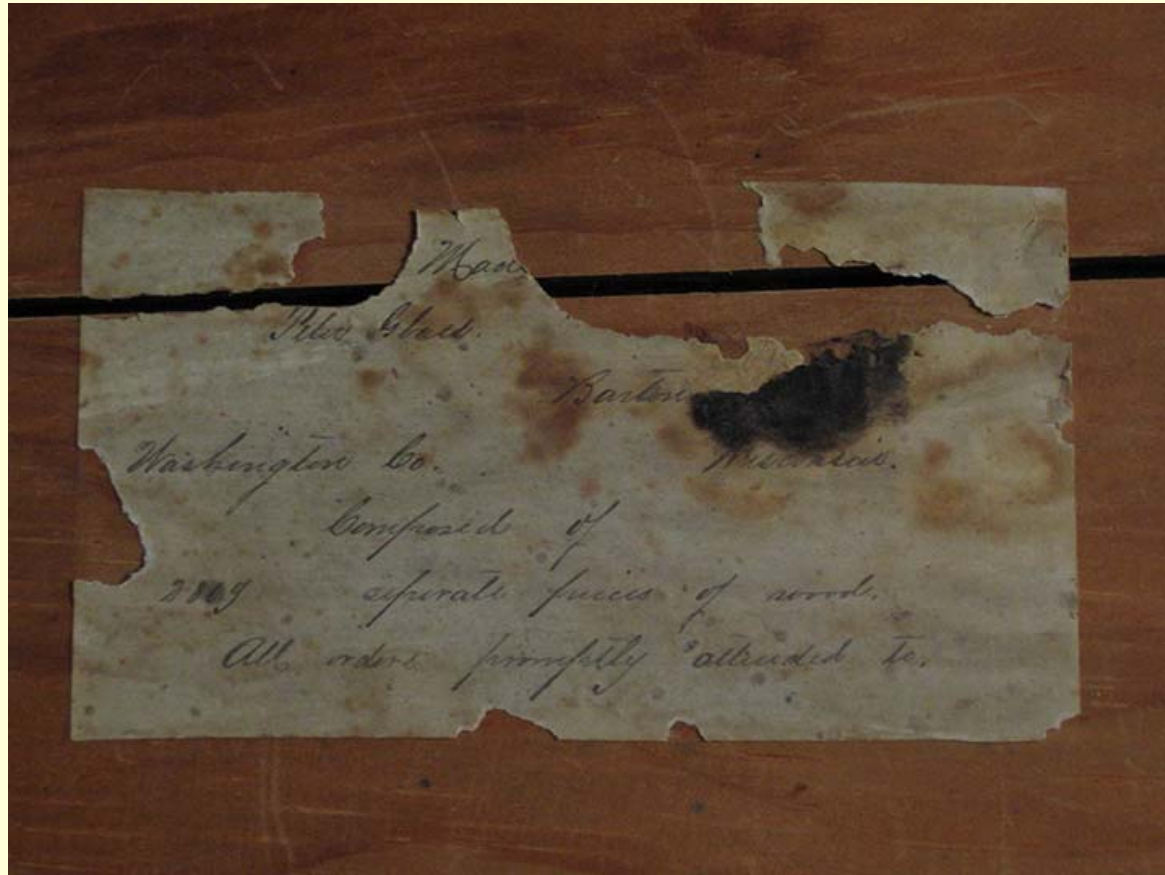 Man
Peter Glass.
Barton
Washington Co. Wisconsin.
Composed of
2809 seperate pieces of wood.
All orders promptly attended to.